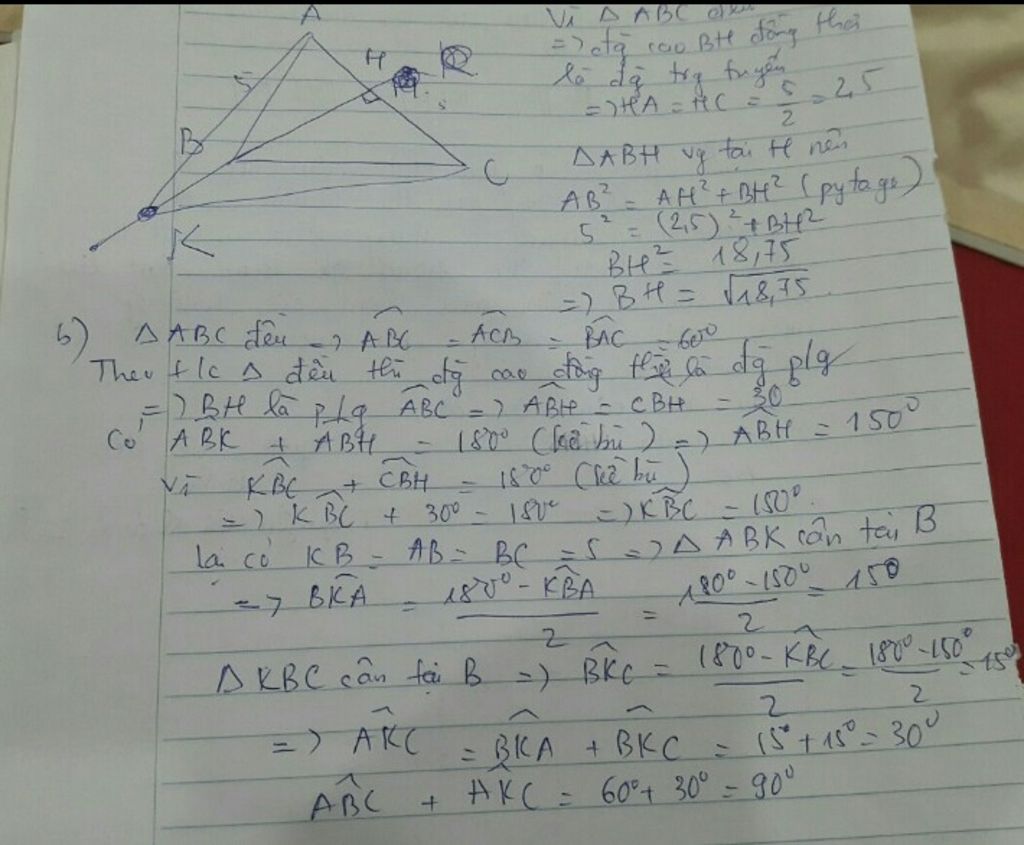 A
5
H
B
C
K
Vì Δ ABC đều
=> đg cao BH đồng thời
là đg trg tuyến
=> HA = HC = 5/2 = 2,5
Δ ABH vg tại H nên
AB² = AH² + BH² (pytago)
5² = (2,5)² + BH²
BH² = 18,75
=> BH = √18,75
b) Δ ABC đều => ^ABC = ^ACB = ^BAC = 60⁰
Theo t/c Δ đều thì đg cao đồng thời là đg p/g
=> BH là p/g ^ABC => ^ABH = CBH = 30
Có ^ABK + ^ABH = 180⁰ (kề bù) => ^ABH = 150⁰
Vì ^KBC + ^CBH = 180⁰ (kề bù)
=> K^BC + 30⁰ = 180⁰ => K^BC = 150⁰.
lại có KB = AB = BC = 5 => Δ ABK cân tại B
=> B^KA = (180⁰ - K^BA)/2 = (180⁰ - 150⁰)/2 = 15⁰
Δ KBC cân tại B => B^KC = (180⁰ - K^BC)/2 = (180⁰ - 150⁰)/2 = 15⁰
=> A^KC = B^KA + B^KC = 15⁰ + 15⁰ = 30⁰
A^BC + A^KC = 60⁰ + 30⁰ = 90⁰